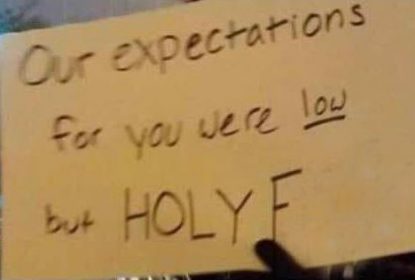 Our expectations
for you were low
but HOLY F